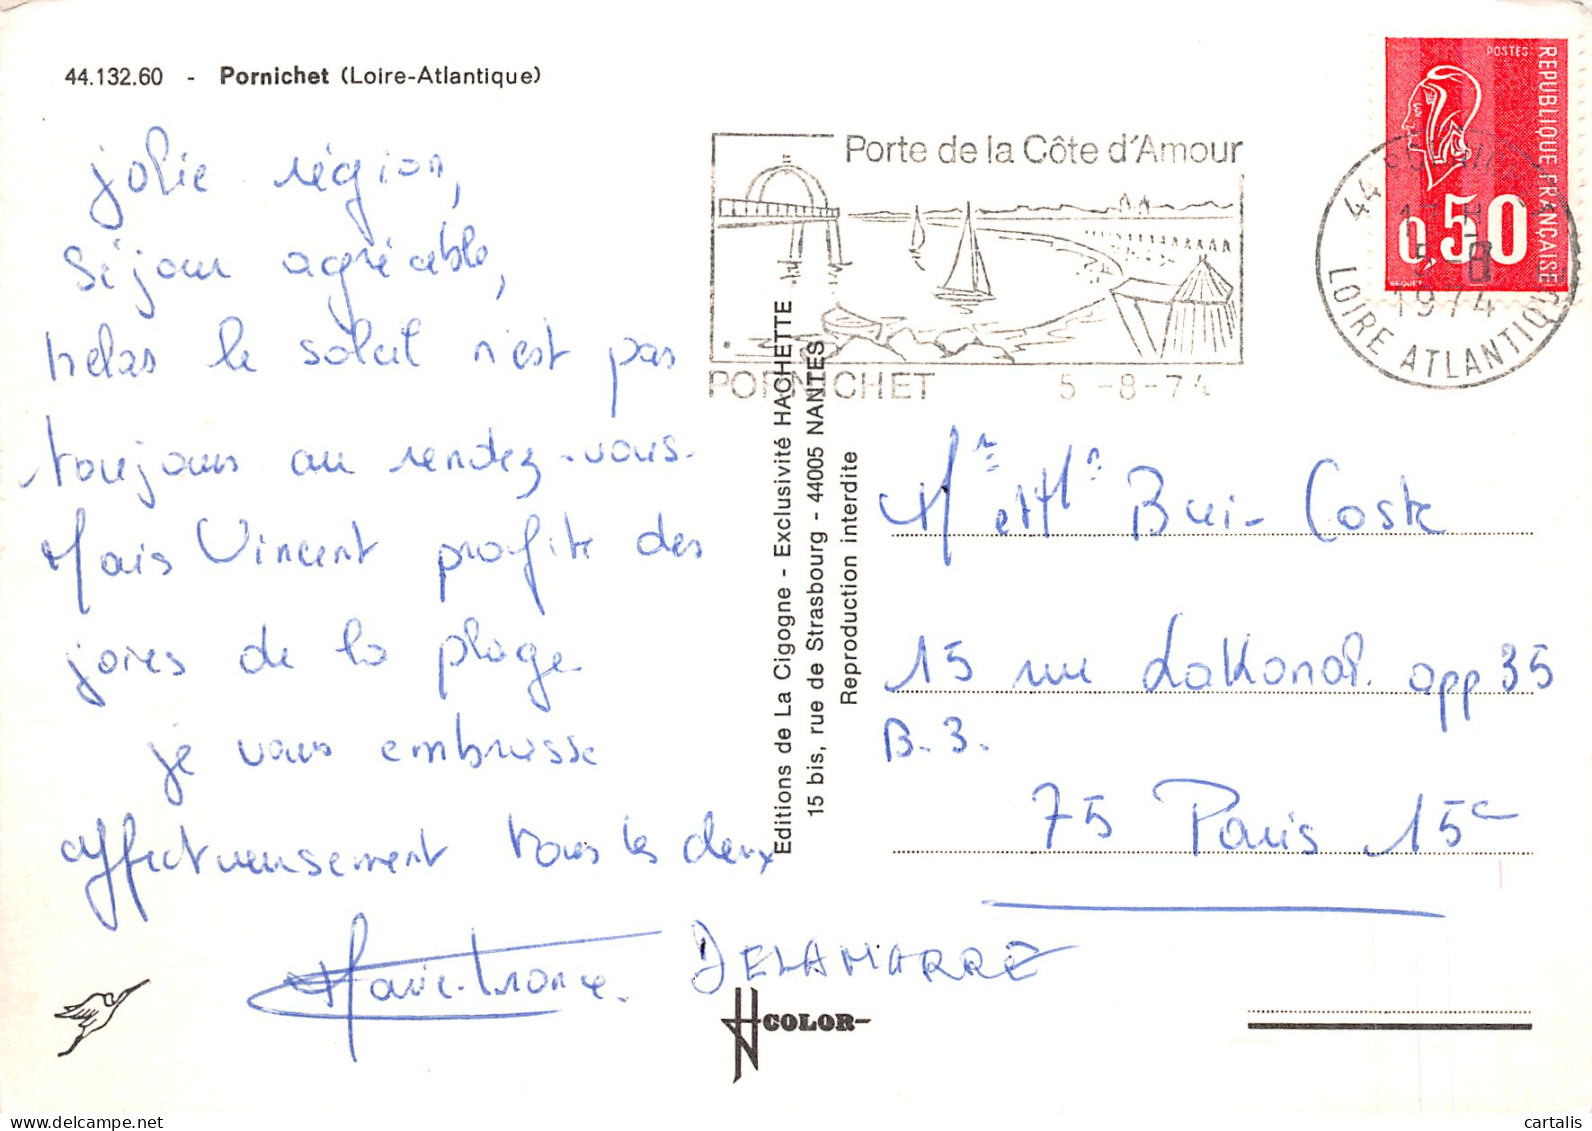 44.132.60 - Pornichet (Loire-Atlantique)
jolie région,
Séjour agréable,
helas le soleil n'est pas
toujours au rendez-vous.
Mais Vincent profite des
joies de la plage
je vous embrasse
affectueusement tous les deux
Marie-France. DELAMARRE
Editions de La Cigogne - Exclusivité HACHETTE
15 bis, rue de Strasbourg - 44005 NANTES
Reproduction interdite
COLOR
Porte de la Côte d'Amour
PORNICHET 5-8-74
POSTES
REPUBLIQUE FRANÇAISE
0,50
BEQUET
44
17 H
5-8
1974
LOIRE ATLANTIQUE
Mr et Me Bui-Coste
15 rue Lakanal. app 35
B.3.
75 Paris 15e
cartalis